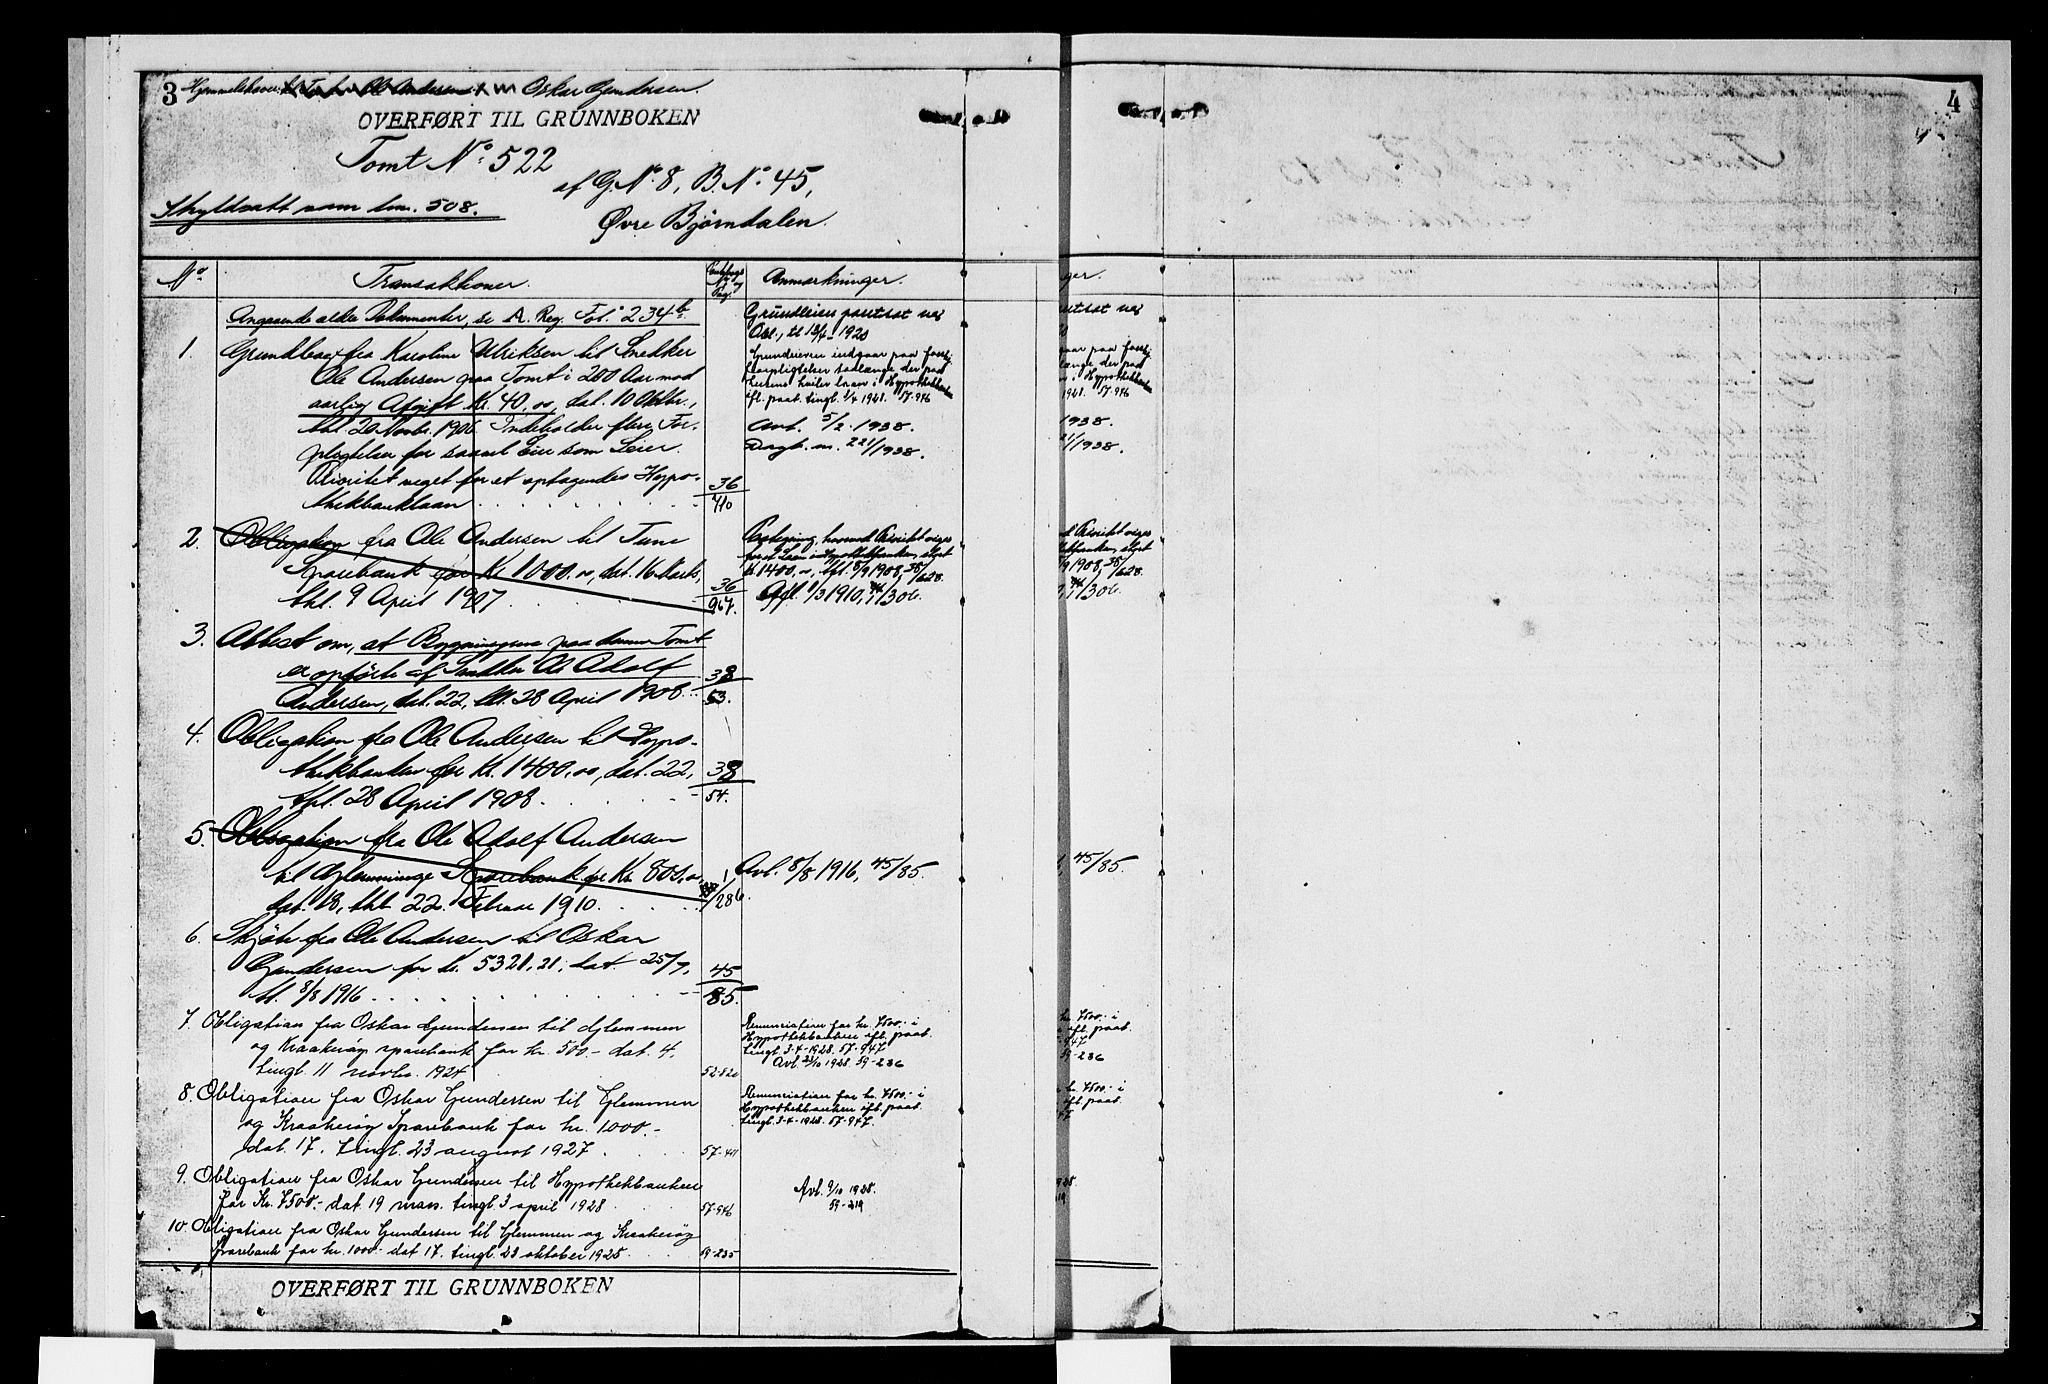 3 Hjemmelshaver: Ole Andersen Oskar Gundersen
OVERFØRT TIL GRUNNBOKEN
Tomt No. 522
af G.No. 8, B.No. 45,
Skyldsatt som bnr. 508.
Øvre Bjørndalen.
No. Transaktioner. Pantebogs No. og Pag. Anmærkninger.
Angaaende ældre Dokumenter, se A. Reg. Fol. 234b.
1. Grundbrev fra Karoline Ulriksen til Snedker
Ole Andersen paa Tomt i 200 Aar mod
aarlig Afgift Kr. 40.00, dat. 10 Oktbr.,
thl. 20 Novbr. 1906. Indeholder flere For-
pligtelser for saavel Eier som Leier.
Prioritet veget for et optagendes Hypo-
thekbanklaan 36/710
Grundleien fortsat ved
Grundeieren indgaar paa forskj.
forpligtelser saalænge der paa
leiens hviler laan i Hypothekbanken
ifl. paat. tingl. 3/4 1928. 57-946
Avl. 5/2-1938.
Dagb. nr. 221/1938.
2. Obligation fra Ole Andersen til Tune
Sparebank for Kr. 1000.00, dat. 16 Marts,
thl. 9 April 1907. 36/967.
Paategning, hvorved Prioritet viges
for et Laan i Hypothekbanken, stort
Kr. 1400.00, thl. 8/9 1908, 38/628.
Afl. 1/3 1910, 306.
3. Attest om, at Bygningerne paa denne Tomt
er opførte af Snedker Ole Adolf
Andersen, dat. 22, thl. 28 April 1908. 38/53.
4. Obligation fra Ole Andersen til Hypo-
thekbanken for Kr. 1400.00, dat. 22,
thl. 28 April 1908. 38/54.
5. Obligation fra Ole Adolf Andersen
til Glemminge Sparebank for Kr. 800.00,
dat. 18, thl. 22. Februar 1910. /286.
Avl. 8/8 1916, 45/85.
6. Skjøte fra Ole Andersen til Oskar
Gundersen for kr. 5321.21, dat. 25/7,
tl. 8/8 1916 45/85.
7. Obligation fra Oskar Gundersen til Glemmen
og Kraakerøy sparebank for kr. 500.- dat. 4.
tingl. 11 novbr. 1924 52-820
Renunciation for kr. 7500.- i
Hypothekbanken ifl. paat.
tingl. 3-4-1928. 57-947
Avl. 23/10 1928. 59-236
8. Obligation fra Oskar Gundersen til Glemmen
og Kraakerøy Sparebank for kr. 1000.-
dat. 17. tingl. 23 august 1927 57-411
Renunciation for kr. 7500.- i
Hypothekbanken ifl. paat.
tingl. 3-4-1928. 57-947.
9. Obligation fra Oskar Gundersen til Hypothekbanken
for Kr. 7500.- dat 19 mars. tingl 3 april 1928 57-946
Avl. 9/10 1928.
59-219
10. Obligation fra Oskar Gundersen til Glemmen og Kraakerøy
sparebank for kr. 1000.- dat 17. tingl. 23 oktober 1928 59-235
OVERFØRT TIL GRUNNBOKEN
4